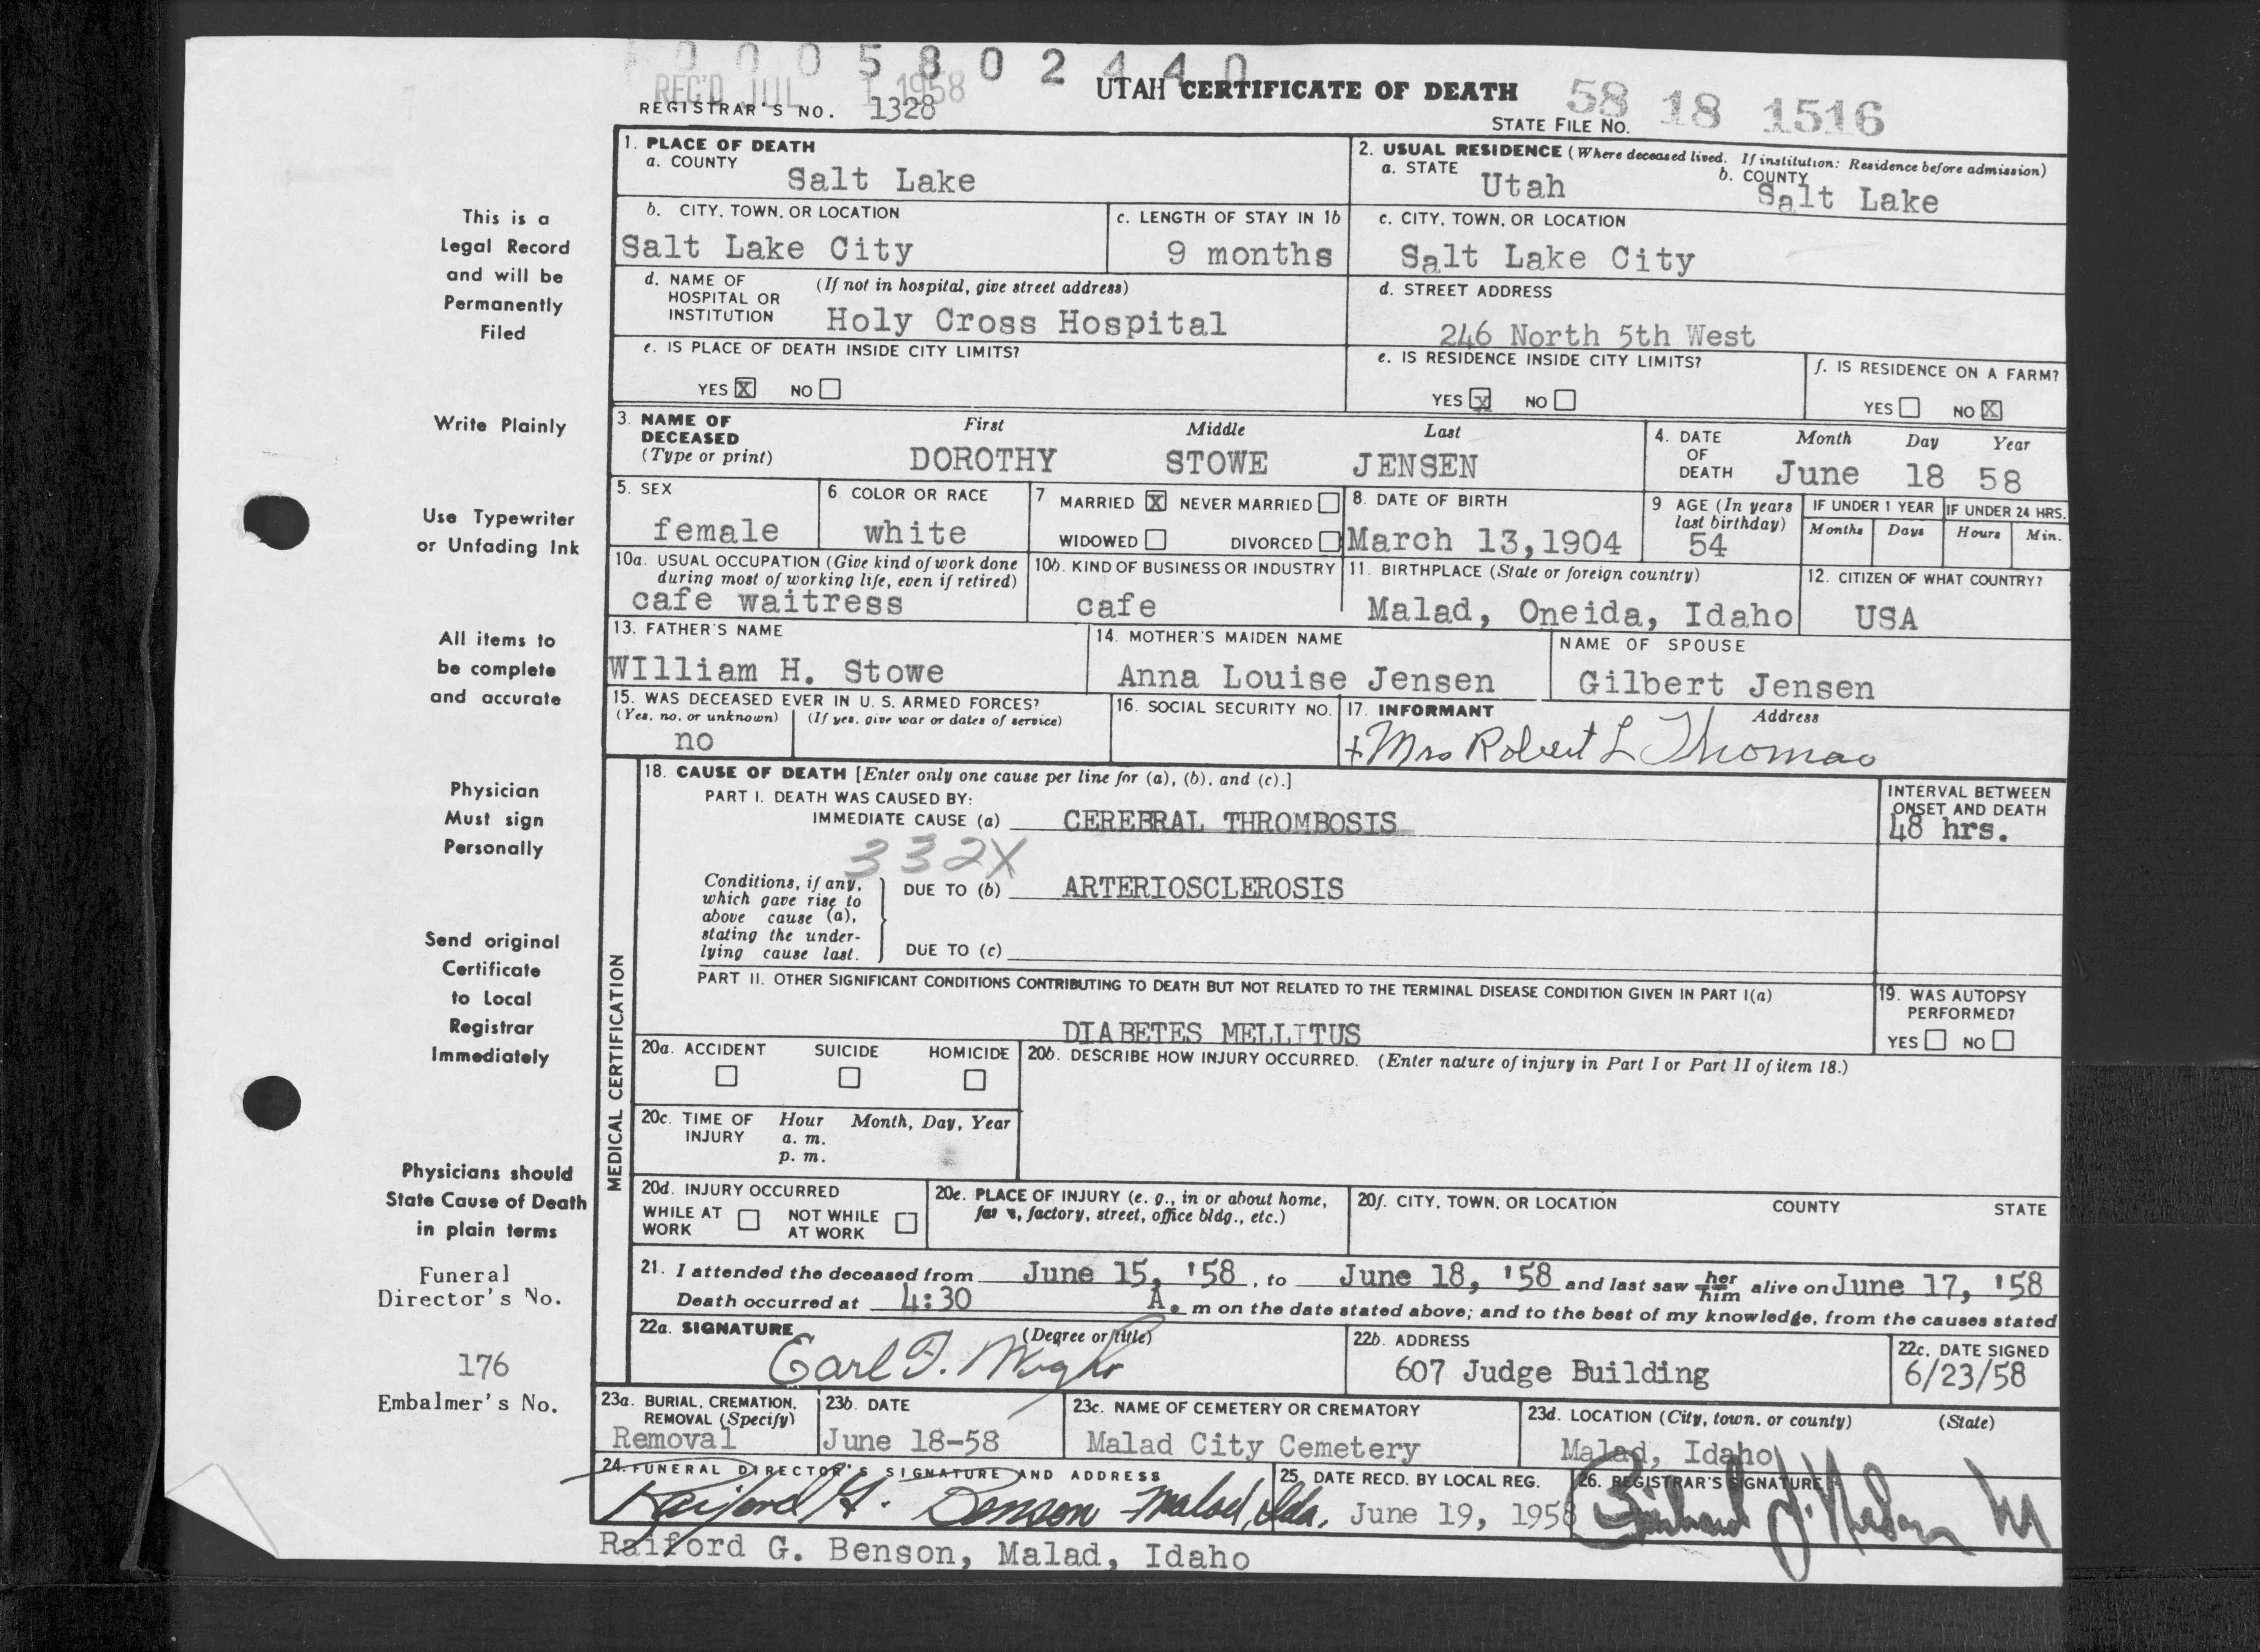 0005802440
REC'D JUL 1 1958
UTAH CERTIFICATE OF DEATH
REGISTRAR'S NO. 1328
STATE FILE NO. 58 18 1516
1. PLACE OF DEATH
a. COUNTY
Salt Lake
2. USUAL RESIDENCE (Where deceased lived. If institution: Residence before admission)
a. STATE Utah b. COUNTY Salt Lake
b. CITY, TOWN, OR LOCATION
Salt Lake City
c. LENGTH OF STAY IN 1b
9 months
c. CITY, TOWN, OR LOCATION
Salt Lake City
d. NAME OF HOSPITAL OR INSTITUTION (If not in hospital, give street address)
Holy Cross Hospital
d. STREET ADDRESS
246 North 5th West
e. IS PLACE OF DEATH INSIDE CITY LIMITS?
YES X NO
e. IS RESIDENCE INSIDE CITY LIMITS?
YES X NO
f. IS RESIDENCE ON A FARM?
YES NO X
3. NAME OF DECEASED (Type or print)
First Middle Last
DOROTHY STOWE JENSEN
4. DATE OF DEATH
Month Day Year
June 18 58
5. SEX
female
6. COLOR OR RACE
white
7. MARRIED X NEVER MARRIED
WIDOWED DIVORCED
8. DATE OF BIRTH
March 13,1904
9 AGE (In years last birthday)
54
IF UNDER 1 YEAR
Months Days
IF UNDER 24 HRS.
Hours Min.
10a. USUAL OCCUPATION (Give kind of work done during most of working life, even if retired)
cafe waitress
10b. KIND OF BUSINESS OR INDUSTRY
cafe
11. BIRTHPLACE (State or foreign country)
Malad, Oneida, Idaho
12. CITIZEN OF WHAT COUNTRY?
USA
13. FATHER'S NAME
WIlliam H. Stowe
14. MOTHER'S MAIDEN NAME
Anna Louise Jensen
NAME OF SPOUSE
Gilbert Jensen
15. WAS DECEASED EVER IN U. S. ARMED FORCES?
(Yes, no, or unknown) (If yes, give war or dates of service)
no
16. SOCIAL SECURITY NO.
17. INFORMANT Address
+ Mrs Robert L Thomas
MEDICAL CERTIFICATION
18. CAUSE OF DEATH [Enter only one cause per line for (a), (b), and (c).]
PART I. DEATH WAS CAUSED BY:
IMMEDIATE CAUSE (a) CEREBRAL THROMBOSIS
INTERVAL BETWEEN ONSET AND DEATH
48 hrs.
332X
Conditions, if any, which gave rise to above cause (a), stating the underlying cause last.
DUE TO (b) ARTERIOSCLEROSIS
DUE TO (c)
PART II. OTHER SIGNIFICANT CONDITIONS CONTRIBUTING TO DEATH BUT NOT RELATED TO THE TERMINAL DISEASE CONDITION GIVEN IN PART I(a)
DIABETES MELLITUS
19. WAS AUTOPSY PERFORMED?
YES NO
20a. ACCIDENT SUICIDE HOMICIDE
20b. DESCRIBE HOW INJURY OCCURRED. (Enter nature of injury in Part I or Part II of item 18.)
20c. TIME OF INJURY Hour Month, Day, Year
a. m.
p. m.
20d. INJURY OCCURRED
WHILE AT WORK NOT WHILE AT WORK
20e. PLACE OF INJURY (e. g., in or about home, factory, street, office bldg., etc.)
20f. CITY, TOWN, OR LOCATION COUNTY STATE
21. I attended the deceased from June 15, '58, to June 18, '58 and last saw her him alive on June 17, '58
Death occurred at 4:30 A. m on the date stated above; and to the best of my knowledge, from the causes stated
22a. SIGNATURE (Degree or title)
Earl F. Wight
22b. ADDRESS
607 Judge Building
22c. DATE SIGNED
6/23/58
23a. BURIAL, CREMATION, REMOVAL (Specify)
Removal
23b. DATE
June 18-58
23c. NAME OF CEMETERY OR CREMATORY
Malad City Cemetery
23d. LOCATION (City, town, or county) (State)
Malad, Idaho
24. FUNERAL DIRECTOR'S SIGNATURE AND ADDRESS
Raiford G. Benson Malad, Ida.
25. DATE RECD. BY LOCAL REG.
June 19, 1958
26. REGISTRAR'S SIGNATURE
Raiford G. Benson, Malad, Idaho
This is a
Legal Record
and will be
Permanently
Filed
Write Plainly
Use Typewriter
or Unfading Ink
All items to
be complete
and accurate
Physician
Must sign
Personally
Send original
Certificate
to Local
Registrar
Immediately
Physicians should
State Cause of Death
in plain terms
Funeral
Director's No.
176
Embalmer's No.